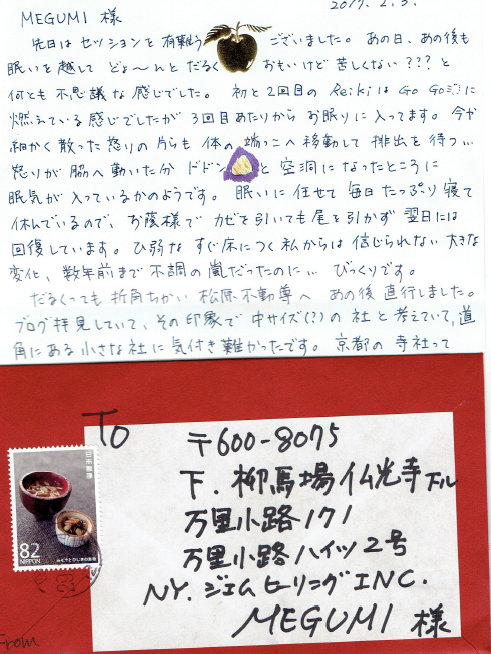 2017. 2. 3.
MEGUMI 様
先日は セッションを 有難う ございました。 あの日、あの後も
眠いを越して どよ〜んと だるく おもいけど 苦しくない ??? と
何とも 不思議な 感じでした。 初と2回目の Reikiは Go Go に
燃えている 感じでしたが 3回目あたりから お眠りに 入ってます。 今が
細かく 散った 怒りの 片らも 体の 端っこへ 移動して 排出を 待つ…
怒りが 脇へ 動いた分 ドドン と 空洞に なったところに
眠気が 入っているかのようです。 眠いに 任せて 毎日 たっぷり 寝て
休んでいるので、お蔭様で カゼを引いても 尾を引かず 翌日には
回復しています。 ひ弱な すぐ床につく 私からは 信じられない 大きな
変化、数年前まで 不調の 嵐だったのに… びっくりです。
だるくっても 折角ちかい 松原不動尊へ あの後 直行しました。
ブログ拝見していて、その印象で 中サイズ(?)の 社と 考えていて、道
角にある 小さな社に 気付き難かったです。 京都の 寺社って
To
〒600-8075
下. 柳馬場仏光寺下ル
万里小路171
万里小路ハイツ2号
NY. ジェムヒーリングINC.
MEGUMI 様
日本郵便
82
NIPPON
From